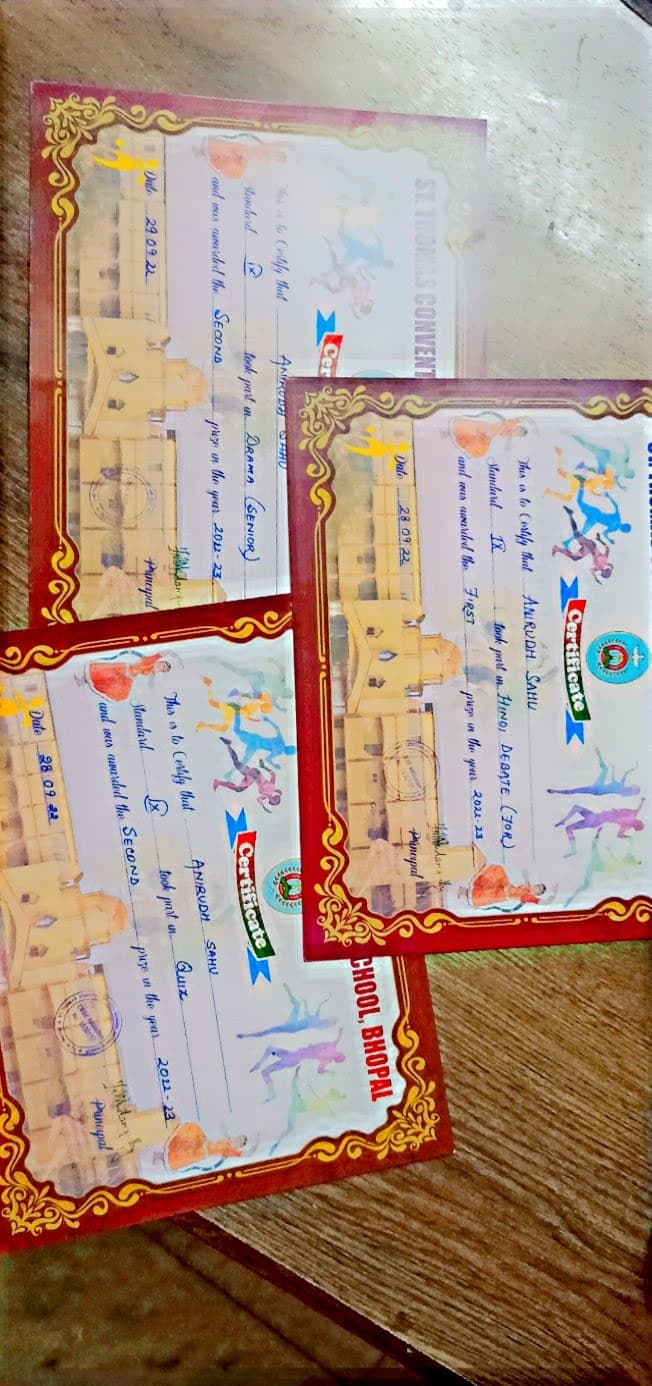 ST. THOMAS CONVENT
Cer
This is to Certify that ANIRUDH SAHU
Standard IX took part in DRAMA (SENIOR)
and was awarded the SECOND prize in the year 2022-23
Date 29.09.22
Principal
Certificate
This is to Certify that ANIRUDH SAHU
Standard IX took part in HINDI DEBATE (FOR)
and was awarded the FIRST prize in the year 2022-23
Date 28.09.22
Principal
CHOOL, BHOPAL
Certificate
This is to Certify that ANIRUDH SAHU
Standard IX took part in QUIZ
and was awarded the SECOND prize in the year 2022-23
Date 28.09.22
Principal